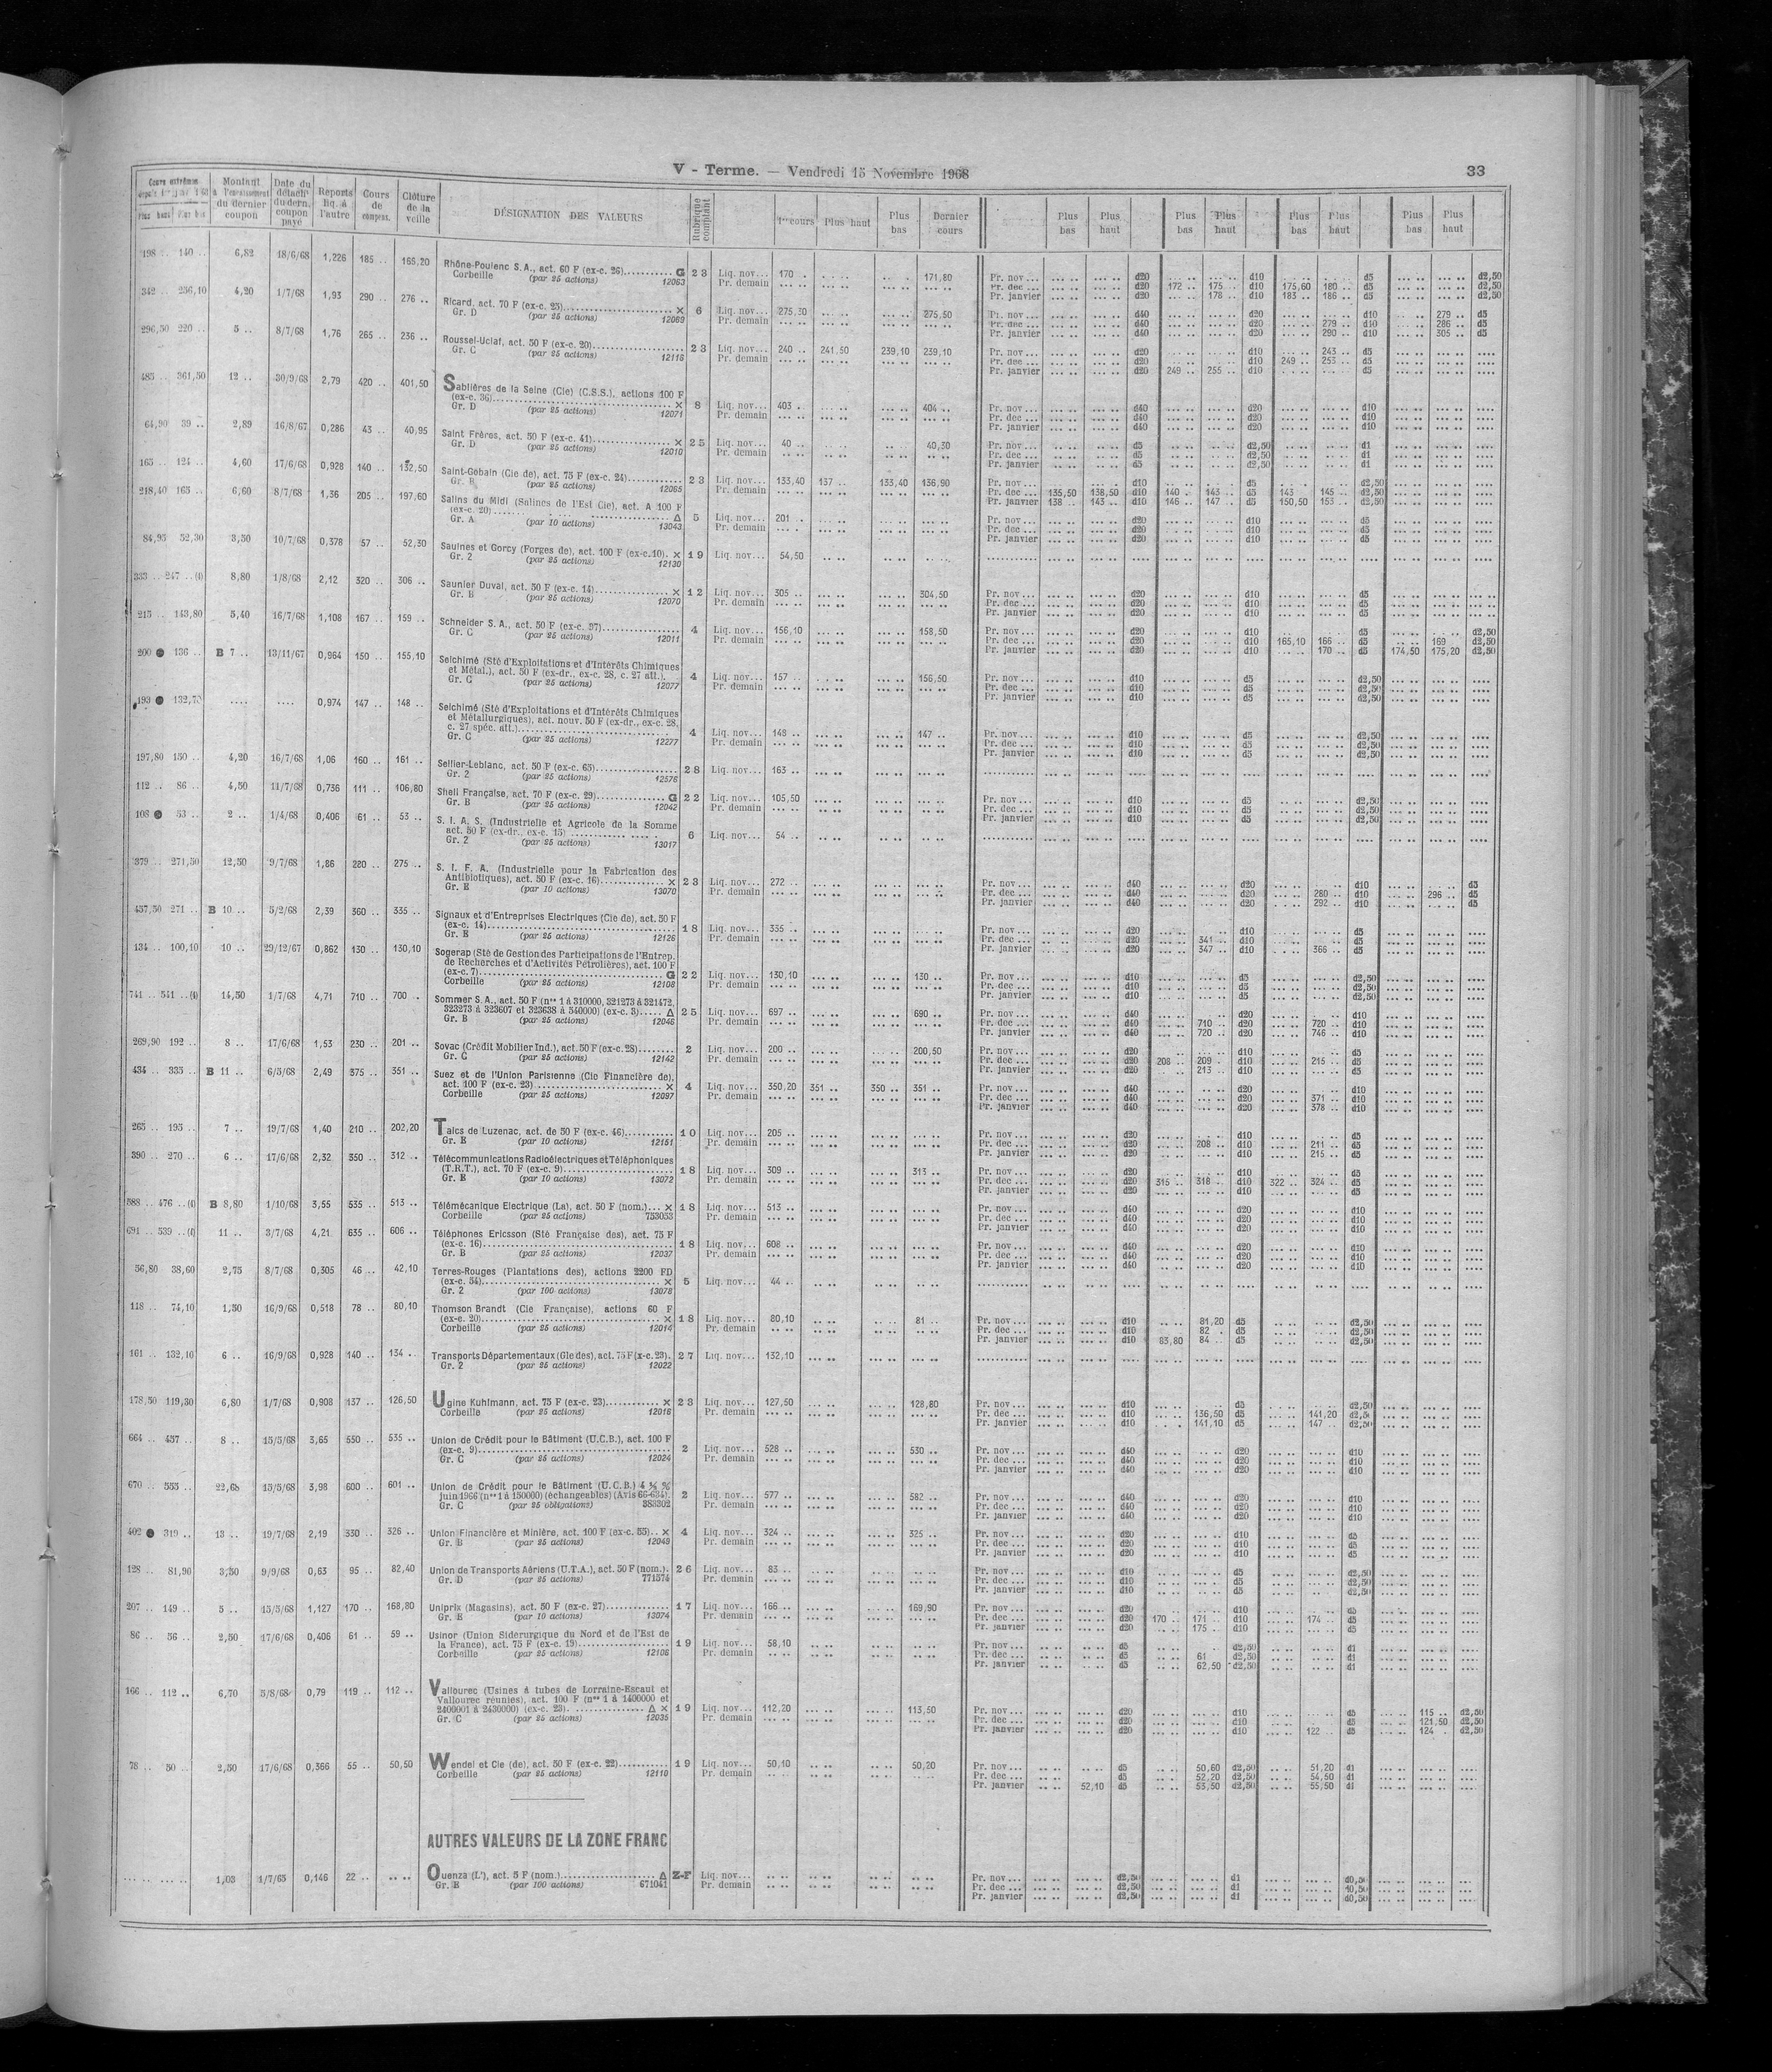 V - Terme. — Vendredi 15 Novembre 1968
33
Montant à l'encaissement du dernier coupon
Date du détacht du dern. coupon payé
Reports liq. à l'autre
Cours de compens.
Clôture de la veille
DÉSIGNATION DES VALEURS
Rubrique comptant
1er cours Plus haut Plus bas Dernier cours
Plus bas Plus haut Plus bas Plus haut Plus bas Plus haut Plus bas Plus haut
198 .. 140 .. 6,82 18/6/68 1,226 185 .. 165,20 Rhône-Poulenc S.A., act. 60 F (ex-c. 26) G 23 Liq. nov... 170 .. 171,80
Corbeille (par 25 actions) 12063 Pr. demain
Pr. nov ... d20 d10 d5 d2,50
Pr. dec ... d20 172 .. 175 .. d10 175,60 180 .. d5 d2,50
Pr. janvier d20 178 .. d10 183 .. 186 .. d5 d2,50
342 .. 256,10 4,20 1/7/68 1,93 290 .. 276 .. Ricard, act. 70 F (ex-c. 25) × 6 Liq. nov... 275,30 275,50
Gr. D (par 25 actions) 12069 Pr. demain
Pr. nov ... d40 d20 d10 279 .. d5
Pr. dec ... d40 d20 279 .. d10 286 .. d5
Pr. janvier d40 d20 290 .. d10 305 .. d5
296,50 220 .. 5 .. 8/7/68 1,76 265 .. 236 .. Roussel-Uclaf, act. 50 F (ex-c. 20) 23 Liq. nov... 240 .. 241,50 239,10 239,10
Gr. C (par 25 actions) 12116 Pr. demain
Pr. nov ... d20 d10 243 .. d5
Pr. dec ... d20 d10 249 .. 253 .. d5
Pr. janvier d20 249 .. 255 .. d10 d5
485 .. 361,50 12 .. 30/9/68 2,79 420 .. 401,50 Sablières de la Seine (Cie) (C.S.S.), actions 100 F
(ex-c. 36) × 8 Liq. nov... 403 .. 404 ..
Gr. D (par 25 actions) 12071 Pr. demain
Pr. nov ... d40 d20 d10
Pr. dec ... d40 d20 d10
Pr. janvier d40 d20 d10
64,90 39 .. 2,89 16/8/67 0,286 43 .. 40,95 Saint Frères, act. 50 F (ex-c. 41) × 25 Liq. nov... 40 .. 40,30
Gr. D (par 25 actions) 12010 Pr. demain
Pr. nov ... d5 d2,50 d1
Pr. dec ... d5 d2,50 d1
Pr. janvier d5 d2,50 d1
165 .. 124 .. 4,60 17/6/68 0,928 140 .. 132,50 Saint-Gobain (Cie de), act. 75 F (ex-c. 24) 23 Liq. nov... 133,40 137 .. 133,40 136,90
Gr. B (par 25 actions) 12065 Pr. demain
Pr. nov ... d10 d5 d2,50
Pr. dec ... 135,50 138,50 d10 140 .. 143 .. d5 143 145 .. d2,50
Pr. janvier 138 .. 143 .. d10 146 .. 147 .. d5 150,50 153 .. d2,50
218,40 163 .. 6,60 8/7/68 1,36 205 .. 197,60 Salins du Midi (Salines de l'Est Cie), act. A 100 F
(ex-c. 20) Δ 5 Liq. nov... 201 ..
Gr. A (par 10 actions) 13043 Pr. demain
Pr. nov ... d20 d10 d5
Pr. dec ... d20 d10 d5
Pr. janvier d20 d10 d5
84,95 52,30 3,50 10/7/68 0,378 57 .. 52,30 Saulnes et Gorcy (Forges de), act. 100 F (ex-c.10). × 19 Liq. nov... 54,50
Gr. 2 12130
333 .. 247 .. (l) 8,80 1/8/68 2,12 320 .. 306 .. Saunier Duval, act. 50 F (ex-c. 14) × 12 Liq. nov... 305 .. 304,50
Gr. B (par 25 actions) 12070 Pr. demain
Pr. nov ... d20 d10 d5
Pr. dec ... d20 d10 d5
Pr. janvier d20 d10 d5
215 .. 143,80 5,40 16/7/68 1,108 167 .. 159 .. Schneider S.A., act. 50 F (ex-c. 97) 4 Liq. nov... 156,10 158,50
Gr. C (par 25 actions) 12011 Pr. demain
Pr. nov ... d20 d10 d5 d2,50
Pr. dec ... d20 d10 165,10 166 .. d5 169 d2,50
Pr. janvier d20 d10 170 .. d5 174,50 175,20 d2,50
200 ● 136 .. B 7 .. 13/11/67 0,964 150 .. 155,10 Selchimé (Sté d'Exploitations et d'Intérêts Chimiques
et Métal.), act. 50 F (ex-dr., ex-c. 28, c. 27 att.). 4 Liq. nov... 157 .. 156,50
Gr. C (par 25 actions) 12077 Pr. demain
Pr. nov ... d10 d5 d2,50
Pr. dec ... d10 d5 d2,50
Pr. janvier d10 d5 d2,50
193 ● 132,70 .... .... 0,974 147 .. 148 .. Selchimé (Sté d'Exploitations et d'Intérêts Chimiques
et Métallurgiques), act. nouv. 50 F (ex-dr., ex-c. 28,
c. 27 spéc. att.) 4 Liq. nov... 148 .. 147 ..
Gr. C (par 25 actions) 12277 Pr. demain
Pr. nov ... d10 d5 d2,50
Pr. dec ... d10 d5 d2,50
Pr. janvier d10 d5 d2,50
197,80 150 .. 4,20 16/7/68 1,06 160 .. 161 .. Sellier-Leblanc, act. 50 F (ex-c. 65) 28 Liq. nov... 163 ..
Gr. 2 12576
112 .. 86 .. 4,50 11/7/68 0,736 111 .. 106,80 Shell Française, act. 70 F (ex-c. 29) G 22 Liq. nov... 105,50
Gr. B (par 25 actions) 12042 Pr. demain
Pr. nov ... d10 d5 d2,50
Pr. dec ... d10 d5 d2,50
Pr. janvier d10 d5 d2,50
108 ● 53 .. 2 .. 1/4/68 0,406 61 .. 53 .. S. I. A. S. (Industrielle et Agricole de la Somme
act. 50 F (ex-dr., ex-c. 15) 6 Liq. nov... 54 ..
Gr. 2 (par 25 actions) 13017
379 .. 271,50 12,50 9/7/68 1,86 280 .. 275 .. S. I. F. A. (Industrielle pour la Fabrication des
Antibiotiques), act. 50 F (ex-c. 16) × 23 Liq. nov... 272 ..
Gr. E (par 10 actions) 13070 Pr. demain
Pr. nov ... d40 d20 d10 d5
Pr. dec ... d40 d20 280 .. d10 296 .. d5
Pr. janvier d40 d20 292 .. d10 d5
437,50 271 .. B 10 .. 5/2/68 2,39 360 .. 335 .. Signaux et d'Entreprises Electriques (Cie de), act. 50 F
(ex-c. 14) 18 Liq. nov... 335 ..
Gr. E (par 25 actions) 12126 Pr. demain
Pr. nov ... d20 d10 d5
Pr. dec ... d20 341 .. d10 d5
Pr. janvier d20 347 .. d10 366 .. d5
134 .. 100,10 10 .. 29/12/67 0,862 130 .. 130,10 Sogerap (Sté de Gestion des Participations de l'Entrep.
de Recherches et d'Activités Pétrolières), act. 100 F
(ex-c. 7) G 22 Liq. nov... 130,10 130 ..
Corbeille (par 25 actions) 12108 Pr. demain
Pr. nov ... d10 d5 d2,50
Pr. dec ... d10 d5 d2,50
Pr. janvier d10 d5 d2,50
741 .. 541 .. (l) 14,50 1/7/68 4,71 710 .. 700 .. Sommer S.A., act. 50 F (nos 1 à 310000, 321273 à 321472,
323273 à 323607 et 323638 à 340000) (ex-c. 3) Δ 25 Liq. nov... 697 .. 690 ..
Gr. B (par 25 actions) 12046 Pr. demain
Pr. nov ... d40 d20 d10
Pr. dec ... d40 710 .. d20 720 .. d10
Pr. janvier d40 720 .. d20 746 .. d10
269,90 192 .. 8 .. 17/6/68 1,53 230 .. 201 .. Sovac (Crédit Mobilier Ind.), act. 50 F (ex-c. 28) 2 Liq. nov... 200 .. 200,50
Gr. C (par 25 actions) 12142 Pr. demain
Pr. nov ... d20 d10 d5
Pr. dec ... d20 208 .. 209 .. d10 215 .. d5
Pr. janvier d20 213 .. d10 d5
434 .. 335 .. B 11 .. 6/5/68 2,49 375 .. 351 .. Suez et de l'Union Parisienne (Cie Financière de),
act. 100 F (ex-c. 23) × 4 Liq. nov... 350,20 351 .. 350 .. 351 ..
Corbeille (par 25 actions) 12097 Pr. demain
Pr. nov ... d40 d20 d10
Pr. dec ... d40 d20 371 .. d10
Pr. janvier d40 d20 378 .. d10
265 .. 195 .. 7 .. 19/7/68 1,40 210 .. 202,20 Talcs de Luzenac, act. de 50 F (ex-c. 46) 10 Liq. nov... 205 ..
Gr. E (par 10 actions) 12151 Pr. demain
Pr. nov ... d20 d10 d5
Pr. dec ... d20 208 .. d10 211 .. d5
Pr. janvier d20 d10 215 .. d5
390 .. 270 .. 6 .. 17/6/68 2,32 350 .. 312 .. Télécommunications Radioélectriques et Téléphoniques
(T.R.T.), act. 70 F (ex-c. 9) 18 Liq. nov... 309 .. 313 ..
Gr. E (par 10 actions) 13072 Pr. demain
Pr. nov ... d20 d10 d5
Pr. dec ... d20 315 .. 318 .. d10 322 .. 324 .. d5
Pr. janvier d20 d10 d5
588 .. 476 .. (l) B 8,80 1/10/68 3,55 535 .. 513 .. Télémécanique Electrique (La), act. 50 F (nom.) × 18 Liq. nov... 513 ..
Corbeille (par 25 actions) 753053 Pr. demain
Pr. nov ... d40 d20 d10
Pr. dec ... d40 d20 d10
Pr. janvier d40 d20 d10
691 .. 539 .. (l) 11 .. 3/7/68 4,21 635 .. 606 .. Téléphones Ericsson (Sté Française des), act. 75 F
(ex-c. 16) 18 Liq. nov... 608 ..
Gr. B (par 25 actions) 12037 Pr. demain
Pr. nov ... d40 d20 d10
Pr. dec ... d40 d20 d10
Pr. janvier d40 d20 d10
56,80 38,60 2,75 8/7/68 0,305 46 .. 42,10 Terres-Rouges (Plantations des), actions 2200 FD
(ex-c. 54) × 5 Liq. nov... 44 ..
Gr. 2 (par 100 actions) 13078
118 .. 74,10 1,30 16/9/68 0,518 78 .. 80,10 Thomson Brandt (Cie Française), actions 60 F
(ex-c. 20) × 18 Liq. nov... 80,10 81 ..
Corbeille (par 25 actions) 12014 Pr. demain
Pr. nov ... d10 81,20 d5 d2,50
Pr. dec ... d10 82 .. d5 d2,50
Pr. janvier d10 83,80 84 .. d5 d2,50
161 .. 132,10 6 .. 16/9/68 0,928 140 .. 134 .. Transports Départementaux (Gle des), act. 75 F (x-c. 23). 27 Liq. nov... 132,10
Gr. 2 (par 25 actions) 12022
178,50 119,30 6,80 1/7/68 0,908 137 .. 126,50 Ugine Kuhlmann, act. 75 F (ex-c. 23) × 23 Liq. nov... 127,50 128,80
Corbeille (par 25 actions) 12016 Pr. demain
Pr. nov ... d10 d5 d2,50
Pr. dec ... d10 136,50 d5 141,20 d2,5
Pr. janvier d10 141,10 d5 147 .. d2,50
664 .. 457 .. 8 .. 15/5/68 3,65 550 .. 535 .. Union de Crédit pour le Bâtiment (U.C.B.), act. 100 F
(ex-c. 9) 2 Liq. nov... 528 .. 530 ..
Gr. C (par 25 actions) 12024 Pr. demain
Pr. nov ... d40 d20 d10
Pr. dec ... d40 d20 d10
Pr. janvier d40 d20 d10
670 .. 555 .. 22,68 15/5/68 3,98 600 .. 601 .. Union de Crédit pour le Bâtiment (U.C.B.) 4 ¾ %
juin 1966 (nos 1 à 150000) (échangeables) (Avis 66-634). 2 Liq. nov... 577 .. 582 ..
Gr. C (par 25 obligations) 383302 Pr. demain
Pr. nov ... d40 d20 d10
Pr. dec ... d40 d20 d10
Pr. janvier d40 d20 d10
402 ● 319 .. 13 .. 19/7/68 2,19 330 .. 326 .. Union Financière et Minière, act. 100 F (ex-c. 55).. × 4 Liq. nov... 324 .. 325 ..
Gr. B (par 25 actions) 12049 Pr. demain
Pr. nov ... d20 d10 d5
Pr. dec ... d20 d10 d5
Pr. janvier d20 d10 d5
128 .. 81,90 3,30 9/9/68 0,63 95 .. 82,40 Union de Transports Aériens (U.T.A.), act. 50 F (nom.). 26 Liq. nov... 83 ..
Gr. D (par 25 actions) 771574 Pr. demain
Pr. nov ... d10 d5 d2,50
Pr. dec ... d10 d5 d2,50
Pr. janvier d10 d5 d2,50
207 .. 149 .. 5 .. 15/5/68 1,127 170 .. 168,80 Uniprix (Magasins), act. 50 F (ex-c. 27) 17 Liq. nov... 166 .. 169,90
Gr. E (par 10 actions) 13074 Pr. demain
Pr. nov ... d20 d10 d5
Pr. dec ... d20 170 .. 171 .. d10 174 .. d5
Pr. janvier d20 175 .. d10 d5
86 .. 56 .. 2,50 17/6/68 0,406 61 .. 59 .. Usinor (Union Siderurgique du Nord et de l'Est de
la France), act. 75 F (ex-c. 19) 19 Liq. nov... 58,10
Corbeille (par 25 actions) 12106 Pr. demain
Pr. nov ... d5 d2,50 d1
Pr. dec ... d5 61 d2,50 d1
Pr. janvier d5 62,50 d2,50 d1
166 .. 112 .. 6,70 5/8/68 0,79 119 .. 112 .. Vallourec (Usines à tubes de Lorraine-Escaut et
Vallourec réunies), act. 100 F (nos 1 à 1400000 et
2400001 à 2430000) (ex-c. 23). Δ × 19 Liq. nov... 112,20 113,50
Gr. C (par 25 actions) 12035 Pr. demain
Pr. nov ... d20 d10 d5 115 .. d2,50
Pr. dec ... d20 d10 d5 121,50 d2,50
Pr. janvier d20 d10 122 .. d5 124 . d2,50
78 .. 50 .. 2,50 17/6/68 0,366 55 .. 50,50 Wendel et Cie (de), act. 50 F (ex-c. 22) 19 Liq. nov... 50,10 50,20
Corbeille (par 25 actions) 12110 Pr. demain
Pr. nov ... d5 50,60 d2,50 51,20 d1
Pr. dec ... d5 52,20 d2,50 54,50 d1
Pr. janvier 52,10 d5 53,50 d2,50 55,50 d1
AUTRES VALEURS DE LA ZONE FRANC
1,03 1/7/65 0,146 22 .. Ouenza (L'), act. 5 F (nom.) Δ Z-F Liq. nov...
Gr. E (par 100 actions) 671041 Pr. demain
Pr. nov ... d2,50 d1 d0,50
Pr. dec ... d2,50 d1 d0,50
Pr. janvier d2,50 d1 d0,50